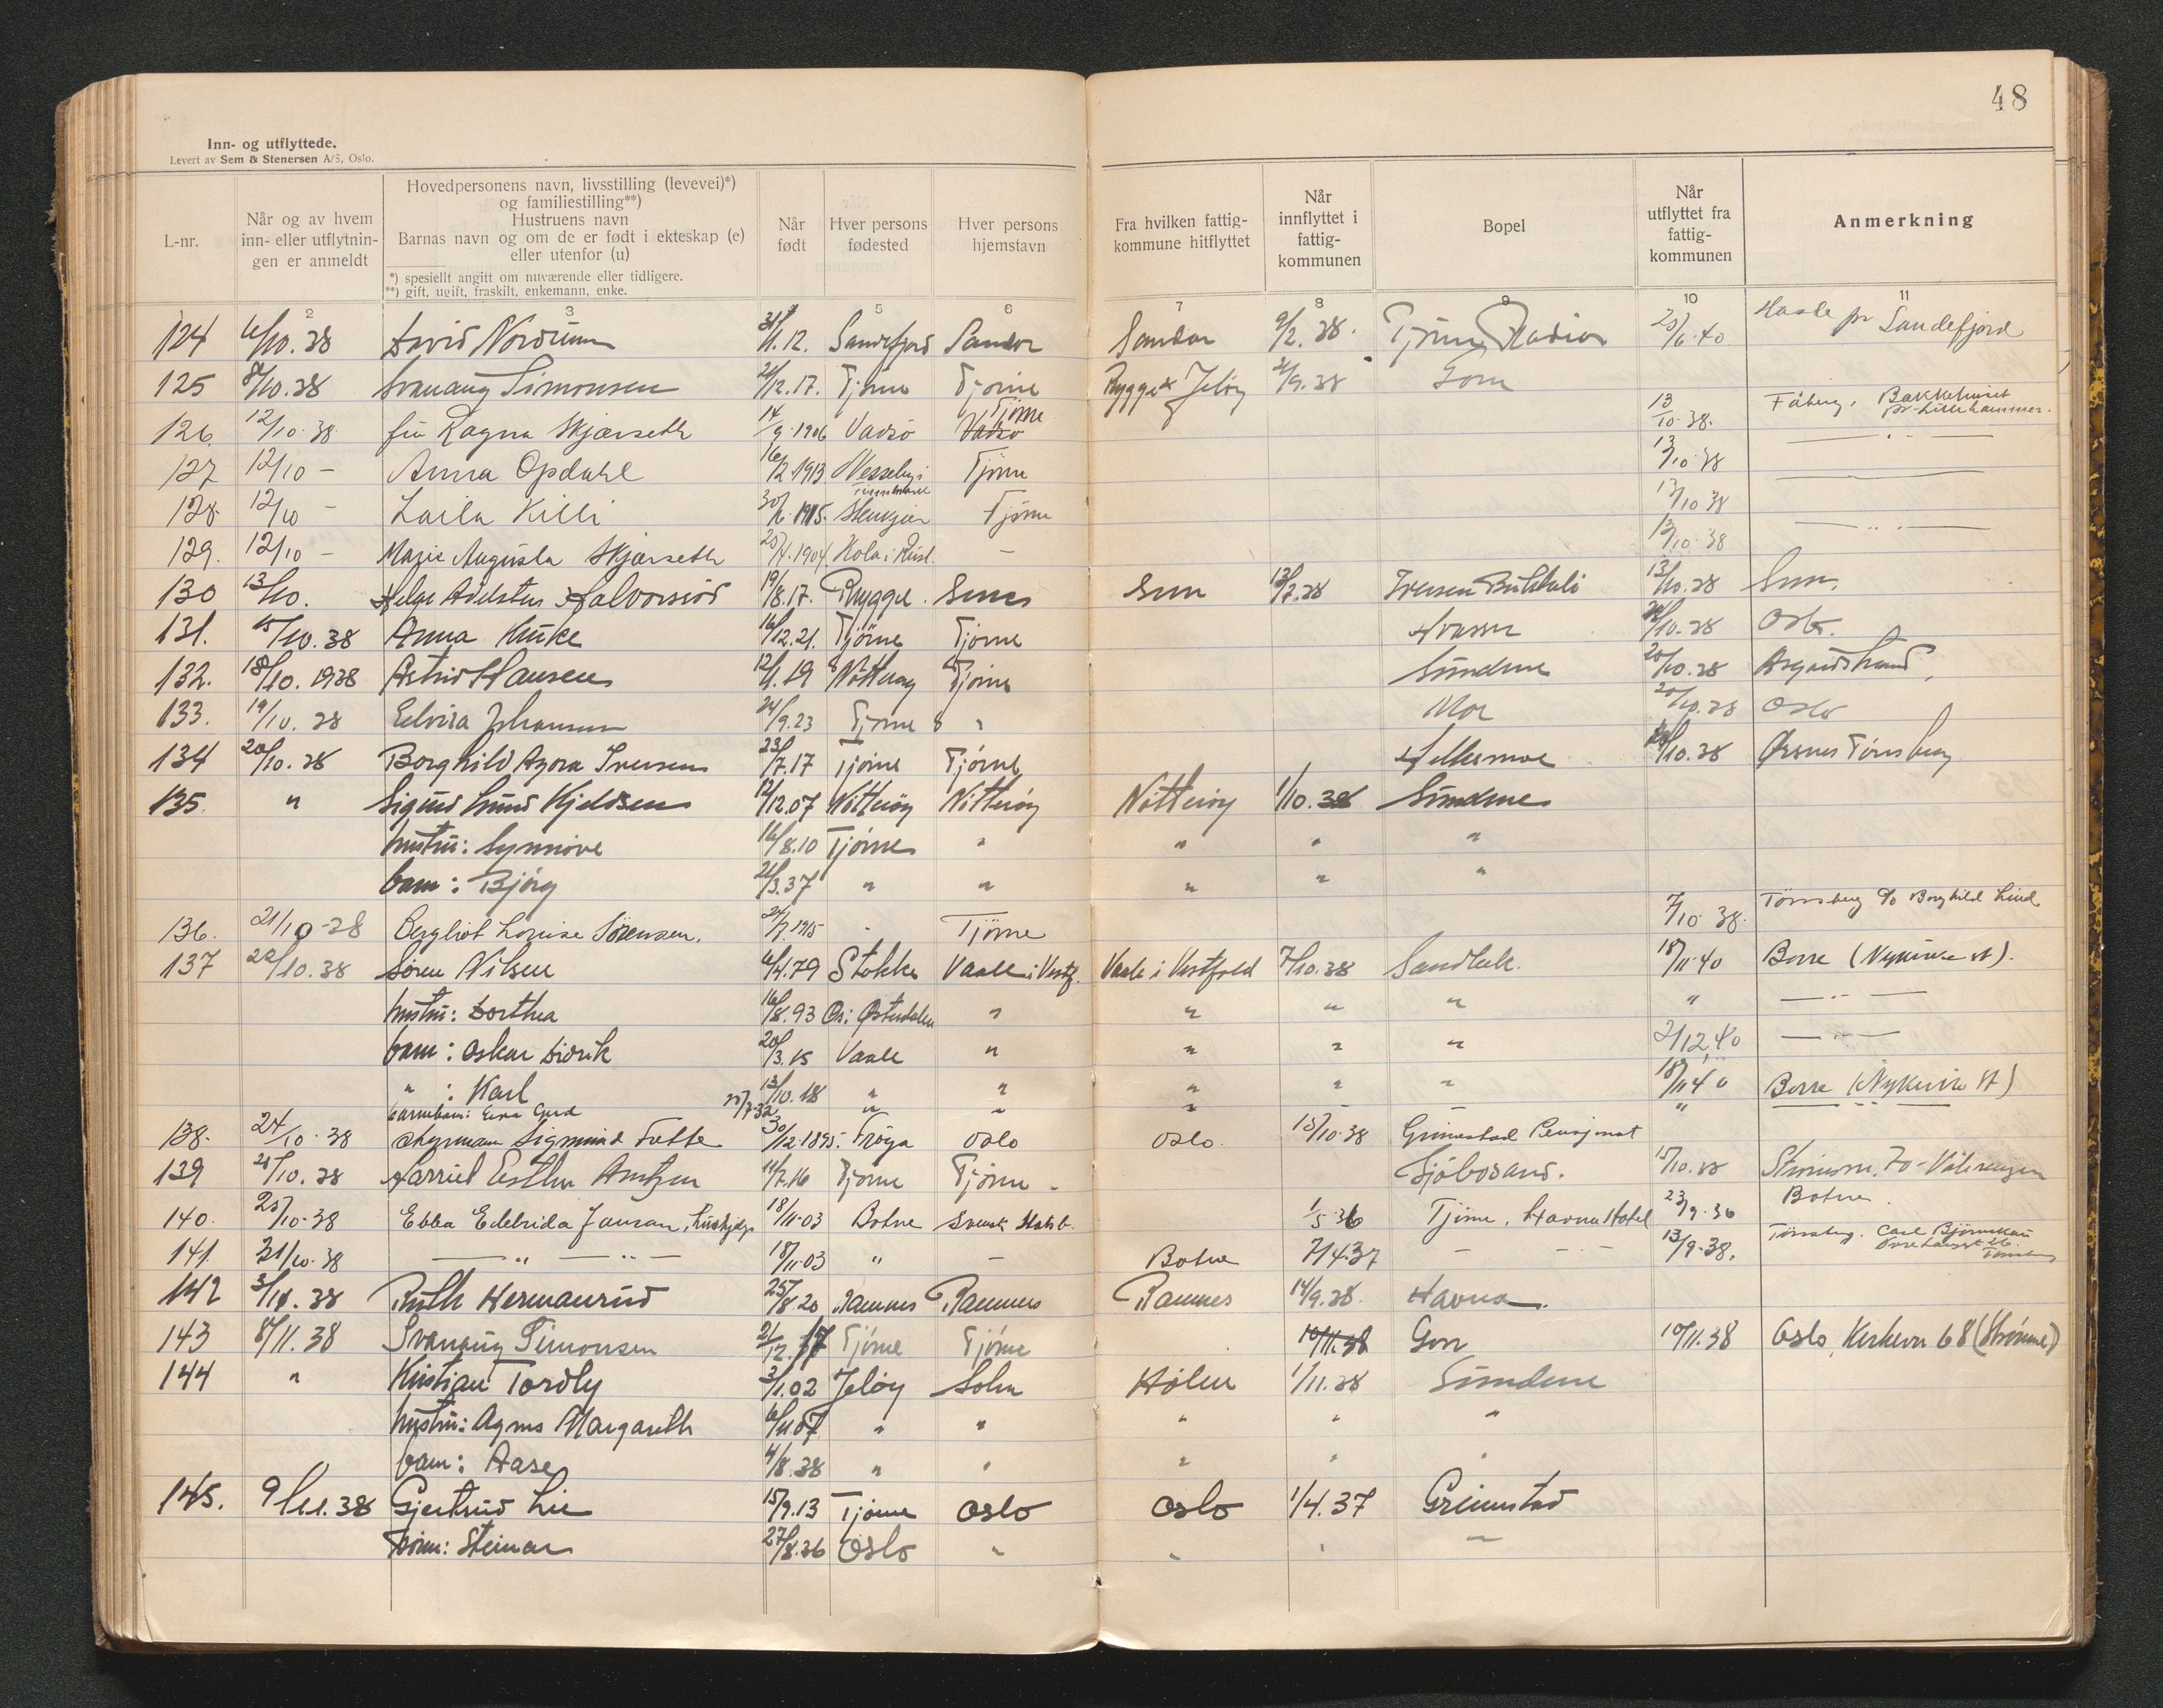 48
Inn- og utflyttede.
Levert av Sem & Stenersen A/S, Oslo.
L-nr.
Når og av hvem
inn- eller utflytnin-
gen er anmeldt
Hovedpersonens navn, livsstilling (levevei)*)
og familiestilling**)
Hustruens navn
Barnas navn og om de er født i ekteskap (e)
eller utenfor (u)
*) spesiellt angitt om nuværende eller tidligere.
**) gift, ugift, fraskilt, enkemann, enke.
Når
født
Hver persons
fødested
Hver persons
hjemstavn
Fra hvilken fattig-
kommune hitflyttet
Når
innflyttet i
fattig-
kommunen
Bopel
Når
utflyttet fra
fattig-
kommunen
Anmerkning
2 3 5 6 7 8 9 10 11
124 David Nordrum Sandefjord Sandar Sandar 9/2.38. Tjøme Radio 25/6.40 Hasle pr Sandefjord
125 8/10.38 Svanaug Simonsen 21/12.17. Tjøme Tjøme Rygge Jeløy Gon
126. 12/10.38 fru Ragna Skjærseth 14/9.1906 Vadsö Tjöme Vadsö 13/10.38. Fåberg, Bakkehuset pr. Lillehammer.
127 12/10 — Anna Opdahl 16/12 1913 Nesseby i Finnmark Tjöme 13/10.38 — " —
128. 12/10 — Laila Killi Stenkjær Tjöme 13/10 38 ———
129. 12/10 — Mazis Augusta Skjærseth 25/4.1904 Kola i Russl. — 13/10.38 — " —
130 13/10. Helge Adelsten Halvorsrød 19/8.17. Rygge Sem Sem 13/7.38 13/10.38 Sem.
131. 15/10.38 Anna Huke 16/12.21. Tjöme Tjöme Hvasser Oslo.
132. 18/10.1938 Astrid Hansen 12/1.19 Nötteröy Tjöme Sundene 20/10.38 Aasgaardstrand,
133. 19/10.38 Edvira Johansen 24/9.23 Tjöme " Mo 20/10.38 Oslo
134 20/10.38 Borghild Agora Iversen 23/7.17 Tjöme Tjöme 10.38 Ørsnes Tönsberg
135. " Sigurd Lund Kjeldsen 12/12.07 Nötteröy Nötteröy Nötteröy 1/10.38 Sundene
hustru: Synnöve 16/8.10 Tjöme " " " "
barn: Bjørg 21/3.37 " " " " "
136. 21/10-38 Bergliot Louise Sörensen. 24/7.1915 " Tjöme 7/10.38. Tönsberg c/o Borghild Lind
137 22/10.38 Sören Nilsen 6/4.79 Stokke Vaale i Vestf. Vaale i Vestfold 7/10.38 18/11.40 Borre (Nykirke st).
hustru: Dorthea 16/8.93 Os i Østerdalen " " " " " — " —
barn: Oskar Didrik 20/3.15 Vaale " " " " 2/12.40 — " —
" : Karl 13/10.18 " " " " " 18/11 40 Borre (Nykirke st)
barnebarn: Gerd 7.32 " " " "
138. 24/10.38 Sigmund Fotte 30/12.1895. Fröya Oslo Oslo. 15/10.38 Grimestad Pensjonat
139 25/10.38 Harriet Esther Arntzen 11/7.16 Tjöme Tjöme Sjöbosand. 15/10.38
140. 25/10.38 Ebba Edelrida Jansan, hushjelp 18/11-03 Botne Svensk statsb. 1/5.36 Tjöme, Havna Hotel 23/9.36 Botne.
141. 31/10.38 — " — " — 18/11-03 " — Botne 7/4.37 — " — 13/9.38. Tönsberg. Carl Björnskau Tönsberg
142 3/11.38 Ruth Hermansrud 25/8.20 Ramnes Ramnes Ramnes 14/9.38. Havna.
143 8/11.38 Svanaug Simonsen 21/12.17 Tjöme Tjöme 10/11.38 Gon 10/11.38 Oslo, Kirkevn 68 (Strömme)
144 " Kristian Tordly 3/1.02 Jelöy Hölen 1/11.38 Sundene
hustru: Agnes Margareth 6/11 07 " " " " "
barn: Aase 4/8.38 " " " " "
145. 9/11.38 Gjertrud Lie 15/9.13 Tjöme Oslo Oslo 1/4.37 Grimestad
Steinar 27/8.36 Oslo " " " "